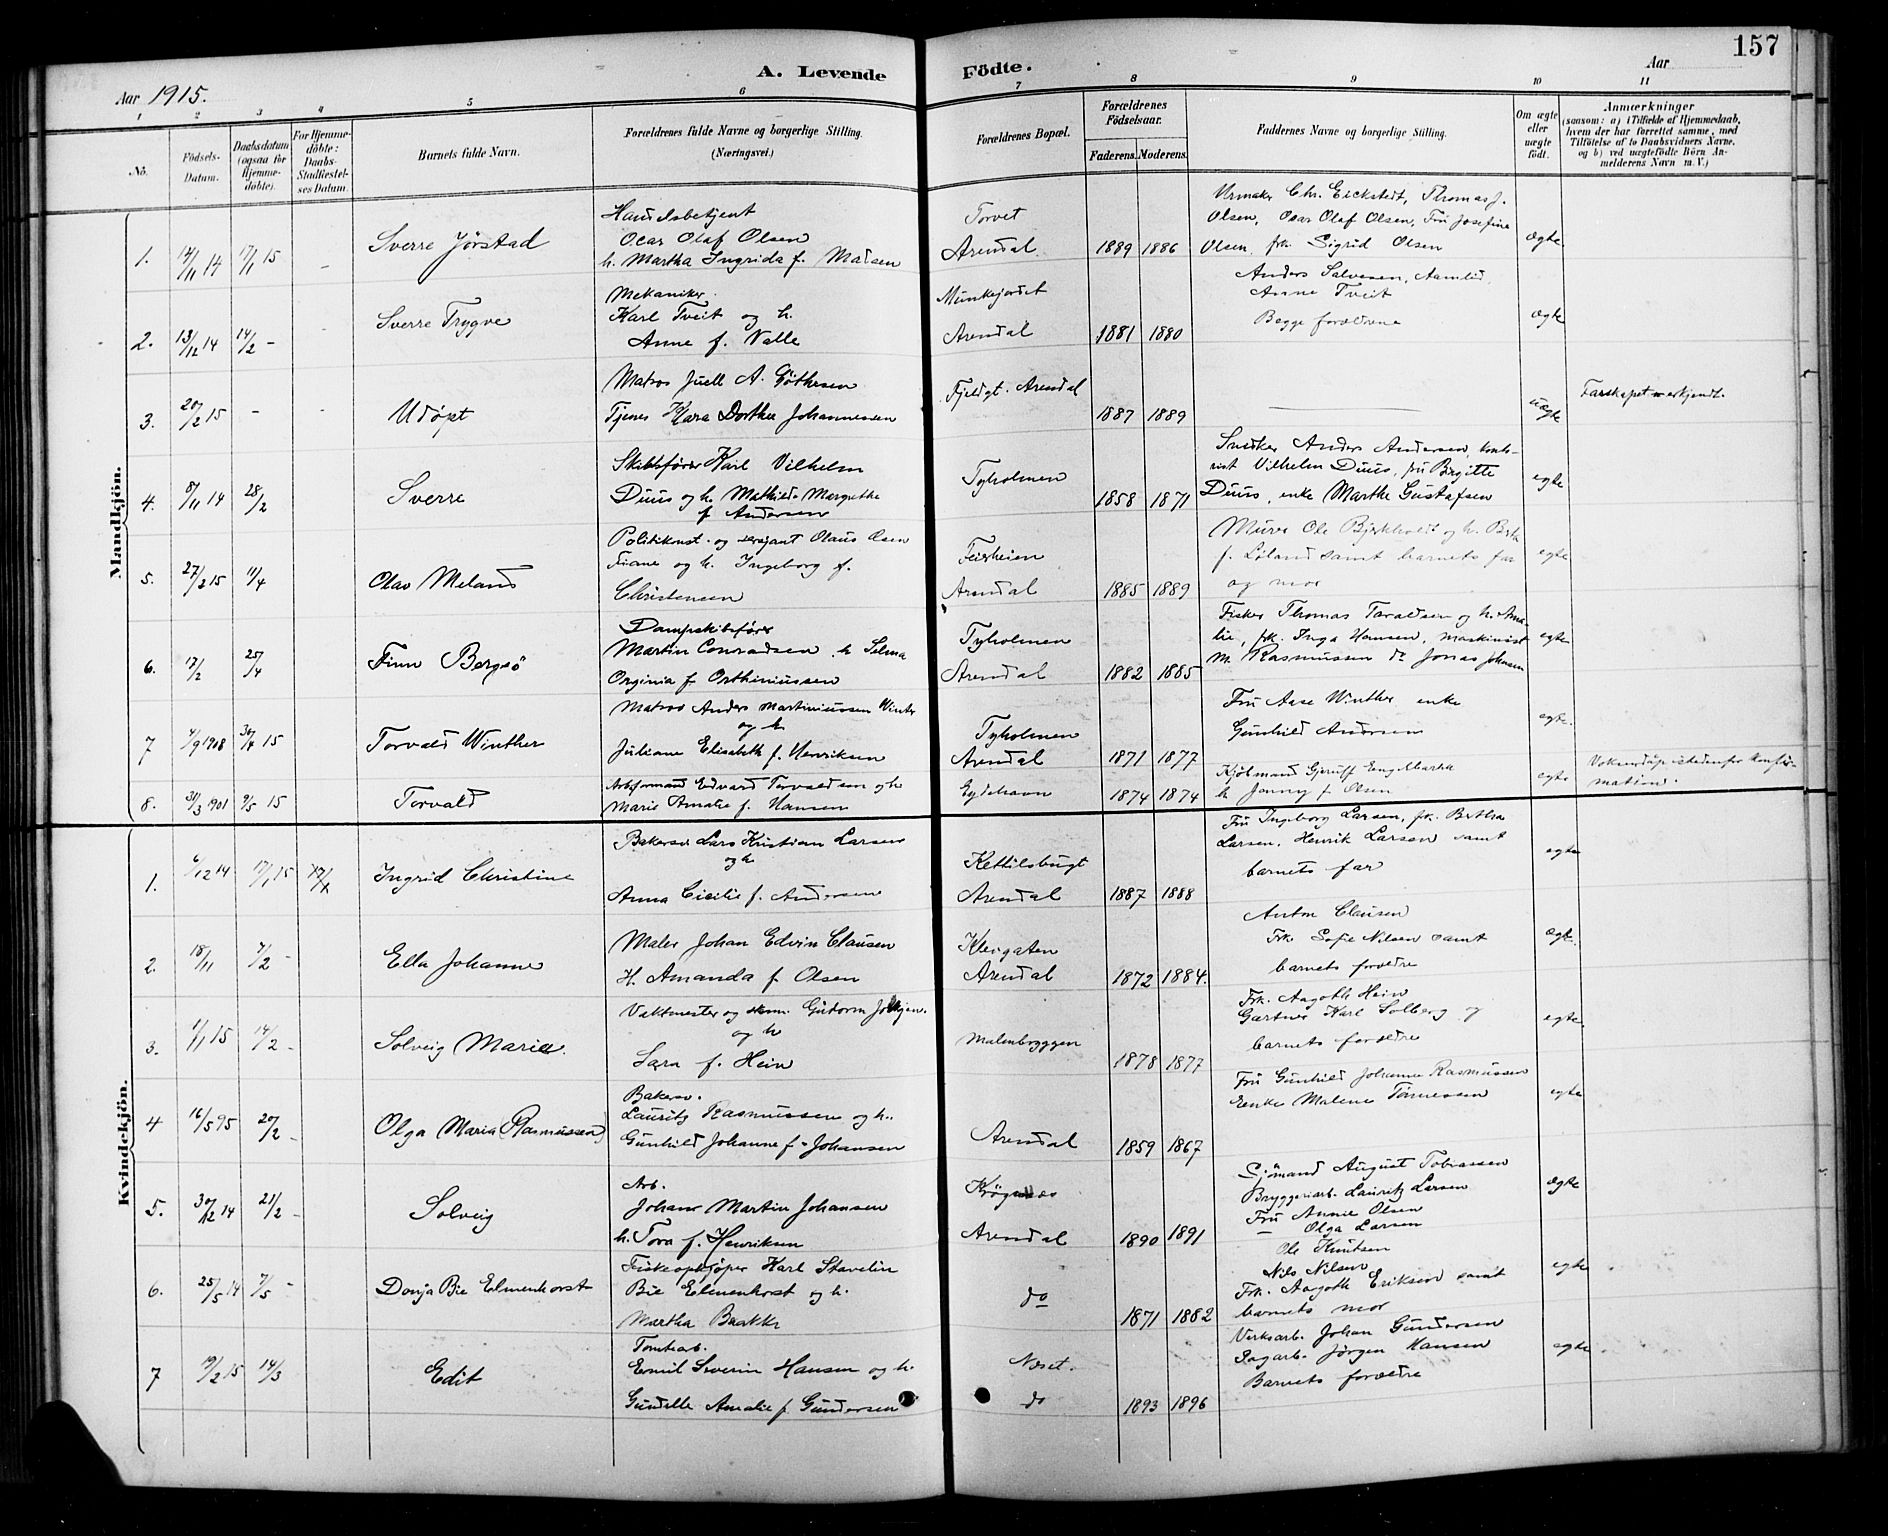 157
A. Levende Födte.
Aar 1915.
Aar
1 2 3 4 5 6 7 8 9 10 11
No.
Födsels-Datum.
Daabsdatum (ogsaa for Hjemmedöbte).
For Hjemmedöbte: Daabs-Stadfæstelses Datum.
Barnets fulde Navn.
Forældrenes fulde Navne og borgerlige Stilling. (Næringsvei.)
Forældrenes Bopæl.
Forældrenes Födselsaar.
Faderens. Moderens.
Faddernes Navne og borgerlige Stilling.
Om ægte eller uægte födt.
Anmærkninger (saasom: a) i Tilfælde af Hjemmedaab, hvem der har forrettet samme, med Tilföielse af to Daabsvidners Navne, og b) ved uægtefödte Börn Anmelderens Navn m. V.)
Mandkjön.
1. 14/11 14 17/1 15 - Sverre Jørstad
Handelsbetjent
Oscar Olaf Olsen
h. Martha Ingrida f. Madsen
Torvet
Arendal. 1889 1886
Urmaker Chr. Eickstedt, Thomas J.
Olsen, Oscar Olaf Olsen, Fru Josefine
Olsen, frk. Sigrid Olsen
ægte
2. 13/12 14 14/2 - Sverre Trygve
Mekaniker
Karl Tveit og h.
Anne f. Valle
Munkejordet
Arendal 1881 1880
Anders Salvesen, Aamlid,
Anne Tveit
Begge forældrene
ægte
3. 20/2 15 - - Udøpt
Matros Juell A. Gøthesen
Tjenes Kara Dorthea Johannessen
Fjeldgt. Arendal 1887 1889
uægte
Farskapet erkjendt.
4. 8/11 14 28/2 Sverre
Skibsfører Karl Vilhelm
Duus og h. Mathilde Margrethe
f. Andersen
Tyholmen 1858 1871
Snedker Anders Andersen, kontorist Vilhelm Duus, fru Birgitte
Duus, enke Marthe Gustafsen
egte
5. 27/2 15 11/4 Olav Meland
Politikonst. og sersjant Olaus Olsen
Fiane og h. Ingeborg f.
Christensen
Feierheien
Arendal 1885 1889
Murer Ole Bjerkholdt og h.
f. samt barnets far
og mor
egte
6. 17/2 25/4 Finn Bergsö
Dampskibsfører
Martin Conradsen h. Selma
Orginia f. Orthiniussen
Tyholmen
Arendal 1882 1885
Fisker Thomas Taraldsen og h. Amalie, frk. Inga Hansen, maskinist
M. Rasmussen do Jonas Johnsen
egte
7 4/9 1908 30/4 15 Torvald Winther
Matros Anders Martiniussen Winter
og h
Juliane Elisabeth f. Henriksen
Tyholmen
Arendal 1871 1877
Fru Aase Winther enke
Gunhild Andersen
egte.
8. 31/3 1901 9/5 15 Torvald
Arbformand Edvard Torvaldsen og h
Marie Amalie f. Hansen
Gydehavn 1874 1874
Kjøbmand Gjeruff
h Jenny f Olsen
egte
Voksendåp istedenfor konfirmation.
Kvindekjön.
1. 6/12 14 17/1 15 Ingrid Christine
Bakersv Lars Kristian Larsen
og h
Anna Cicilie f. Andersen
Kettilsbugt
Arendal 1887 1888
Fru Ingeborg Larsen, frk. Bertha
Larsen, Henrik Larsen samt
barnets far
egte
2. 18/11 7/2 - Ella Johanne
Maler Johan Edvin Clausen
H. Amanda f. Olsen
Klevgaten
Arendal 1872 1884.
Anton Clausen
Frk. Sofie Nilsen samt
barnets forældre
ægte.
3. 1/1 15 14/2 - Solveig Marie.
Vaktmester og Gutorm
og h
Sara f. Hein
Malmbryggen 1878 1877
Frk. Aagoth Hein
Gartner Karl Solberg og
barnets forældre
egte
4 16/5 95 20/2 - Olga Maria (Rasmussen)
Bakersv.
Lauritz Rasmussen og h.
Gunhild Johanne f. Johansen
Arendal 1859 1867
Fru Gunhild Johanne Rasmussen
Enke Malene Tønnessen
egte
5. 30/12 14 21/2 - Solveig
Arb.
Johan Martin Johansen
h. Tora f. Henriksen
Arendal 1890 1891
Sjömand August Tobiassen
Bryggeriarb. Lauritz Larsen
Fru Annie Olsen
— Olga Larsen
ægte
6. 25/5 14 7/5 - Donja Bie Elmenhorst
Fiskeopkjøper Karl Stavelin
Bie Elmenhorst og h.
Martha Brakke
do 1871 1882
Ole Knutsen
Nils Nilsen
Frk. Aagoth Eriksen samt
barnets mor
egte
7 19/2 15 14/3 Edit
Tomtearb.
Emil Severin Hansen og h.
Gundelle Amalie f. Gundersen
Neset.
do 1893 1896
Verksarb. Johan Gundersen
Dagarb. Jørgen Hansen
Barnets forældre
egte